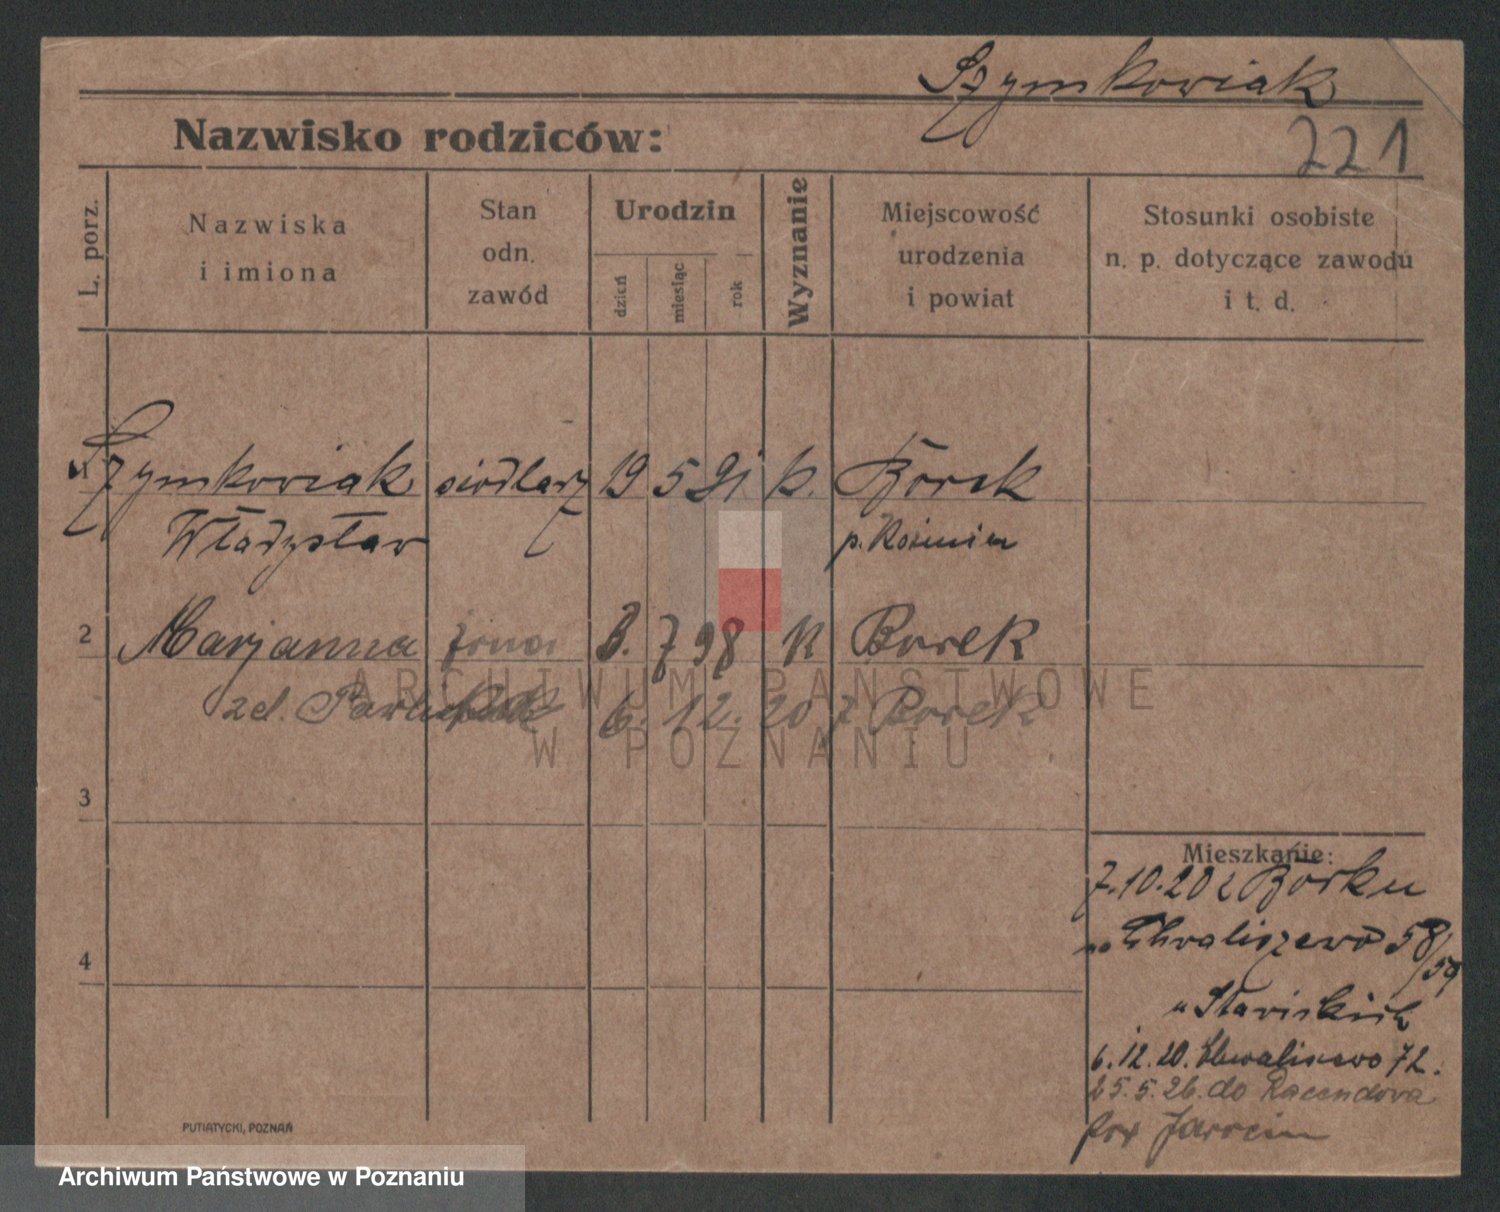 Szymkowiak
Nazwisko rodziców:
221
L. porz.
Nazwiska
i imiona
Stan
odn.
zawód
Urodzin
dzień
miesiąc
rok
Wyznanie
Miejscowość
urodzenia
i powiat
Stosunki osobiste
n. p. dotyczące zawodu
i t. d.
1 Szymkowiak siodlarz 19 5 91 k. Borek
Władysław p. Koźmin
2 Marjanna żona 3. 7 98 K Borek
zd. 6. 12. 20 z Borek
ARCHIWUM PAŃSTWOWE
W POZNANIU
3
4
Mieszkanie:
7.10.20 z Borku
na Chwaliszewo 58/59
u
6.12.20. Chwaliszewo 72.
25.5.26. do Racendowa
pow Jarocin
PUTIATYCKI, POZNAŃ
Archiwum Państwowe w Poznaniu